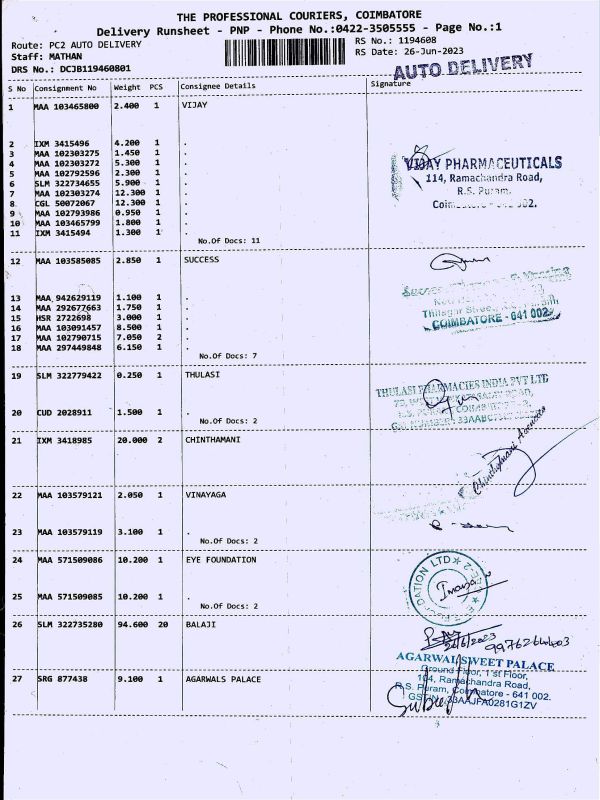 THE PROFESSIONAL COURIERS, COIMBATORE
Delivery Runsheet - PNP - Phone No.:0422-3505555 - Page No.:1
Route: PC2 AUTO DELIVERY
RS No.: 1194608
Staff: MATHAN
RS Date: 26-Jun-2023
DRS No.: DCJB119460801
AUTO DELIVERY
S No Consignment No Weight PCS Consignee Details Signature
1 MAA 103465800 2.400 1 VIJAY
2 IXM 3415496 4.200 1 .
3 MAA 102303275 1.450 1 .
4 MAA 102303272 5.300 1 .
5 MAA 102792596 2.300 1 .
6 SLM 322734655 5.900 1 .
7 MAA 102303274 12.300 1 .
8 CGL 50072067 12.300 1 .
9 MAA 102793986 0.950 1 .
10 MAA 103465799 1.800 1 .
11 IXM 3415494 1.300 1 .
No.Of Docs: 11
VIJAY PHARMACEUTICALS
114, Ramachandra Road,
R.S. Puram,
12 MAA 103585085 2.850 1 SUCCESS
13 MAA 942629119 1.100 1 .
14 MAA 292677663 1.750 1 .
15 HSR 2722698 3.000 1 .
16 MAA 103091457 8.500 1 .
17 MAA 102790715 7.050 2 .
18 MAA 297449848 6.150 1 .
No.Of Docs: 7
COIMBATORE - 641 002
19 SLM 322779422 0.250 1 THULASI
20 CUD 2028911 1.500 1 .
No.Of Docs: 2
THULASI PHARMACIES INDIA PVT LTD
21 IXM 3418985 20.000 2 CHINTHAMANI
Chinthamani Agencies
22 MAA 103579121 2.050 1 VINAYAGA
23 MAA 103579119 3.100 1 .
No.Of Docs: 2
24 MAA 571509086 10.200 1 EYE FOUNDATION
25 MAA 571509085 10.200 1 .
No.Of Docs: 2
26 SLM 322735280 94.600 20 BALAJI
26/6/2023
27 SRG 877438 9.100 1 AGARWALS PALACE
AGARWAL SWEET PALACE
Ground Floor, 1st Floor,
104, Ramachandra Road,
R.S. Puram, Coimbatore - 641 002.
GSTIN: 33AAJFA0281G1ZV